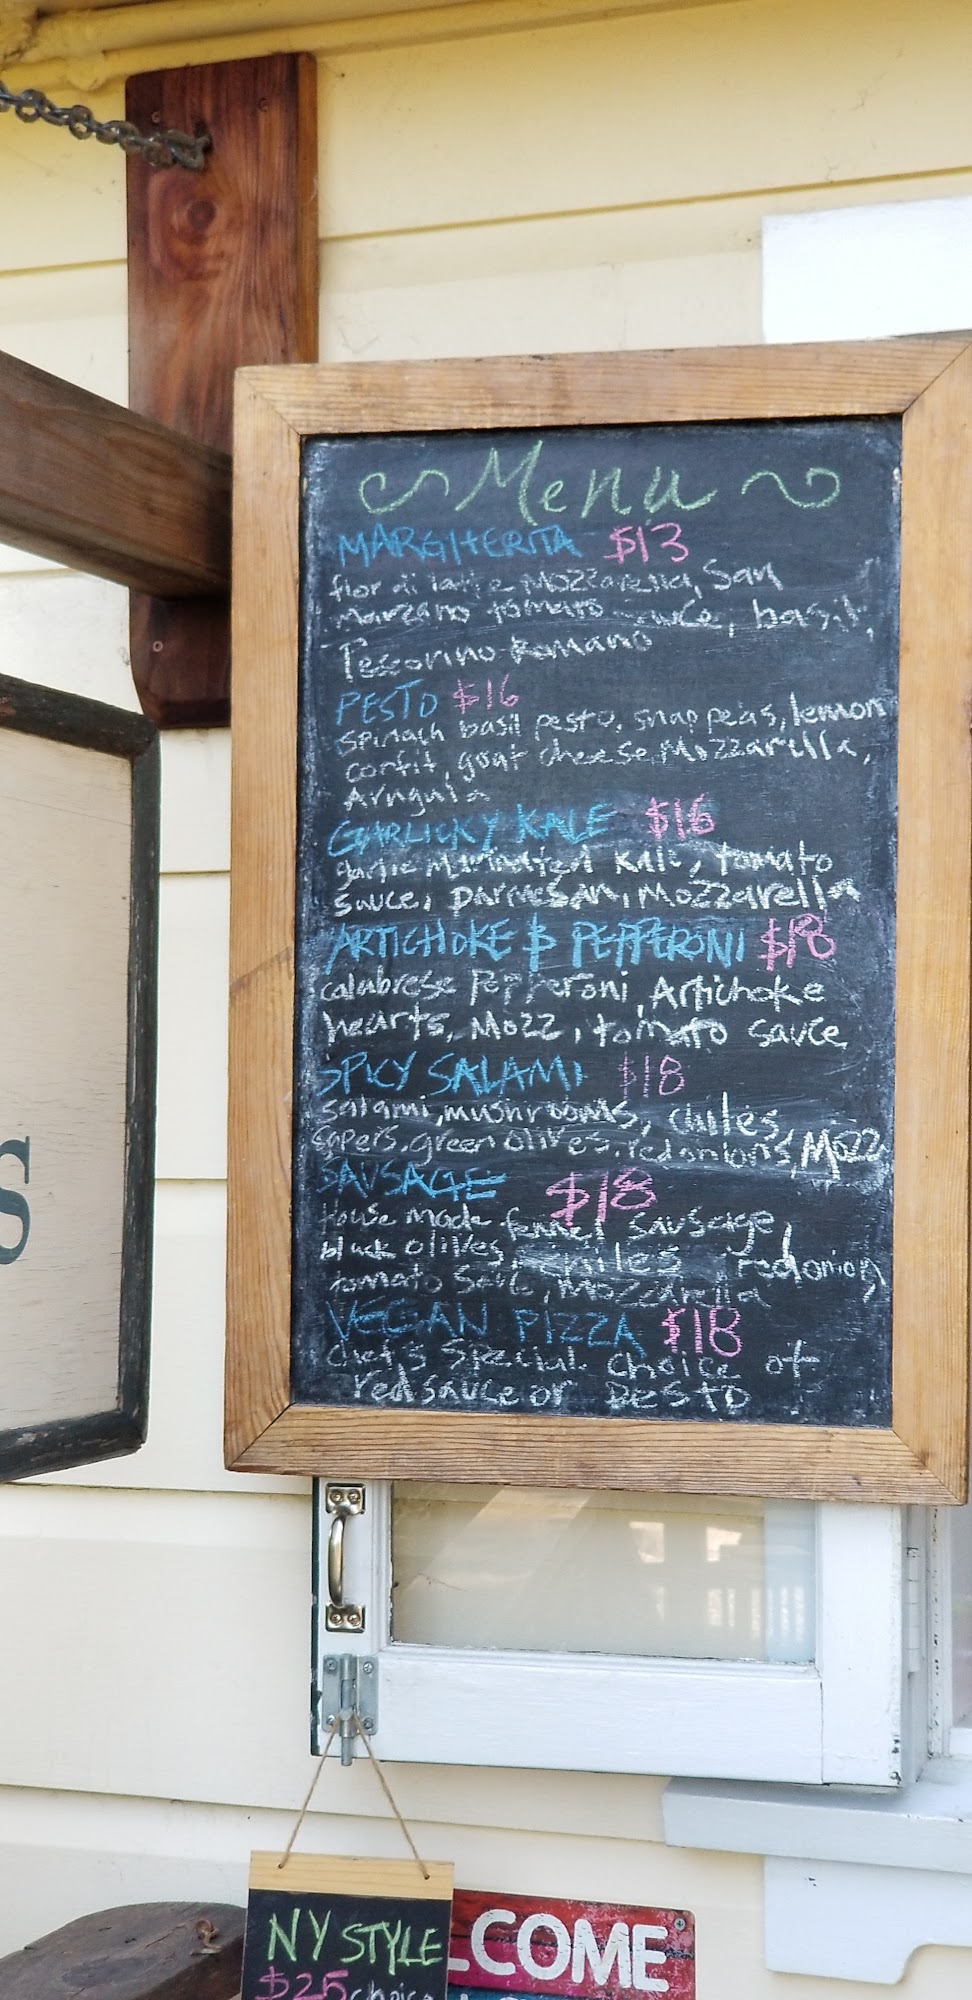 Menu
MARGHERITA $13
fior di latte Mozzarella, San
Marzano tomato sauce, basil,
Pecorino Romano
PESTO $16
spinach basil pesto, snap peas, lemon
confit, goat cheese, Mozzarella,
Arugula
GARLICKY KALE $16
garlic Marinated Kale, tomato
sauce, parmesan, Mozzarella
ARTICHOKE & PEPPERONI $18
calabrese Pepperoni, Artichoke
hearts, Mozz, tomato sauce
SPICY SALAMI $18
salami, mushrooms, chiles,
capers, green olives, red onions, Mozz
SAUSAGE $18
House made fennel sausage,
black olives, chiles, red onion,
tomato sauce, Mozzarella
VEGAN PIZZA $18
chef's Special choice of
red sauce or pesto
S
NY STYLE
$25 choice
LCOME